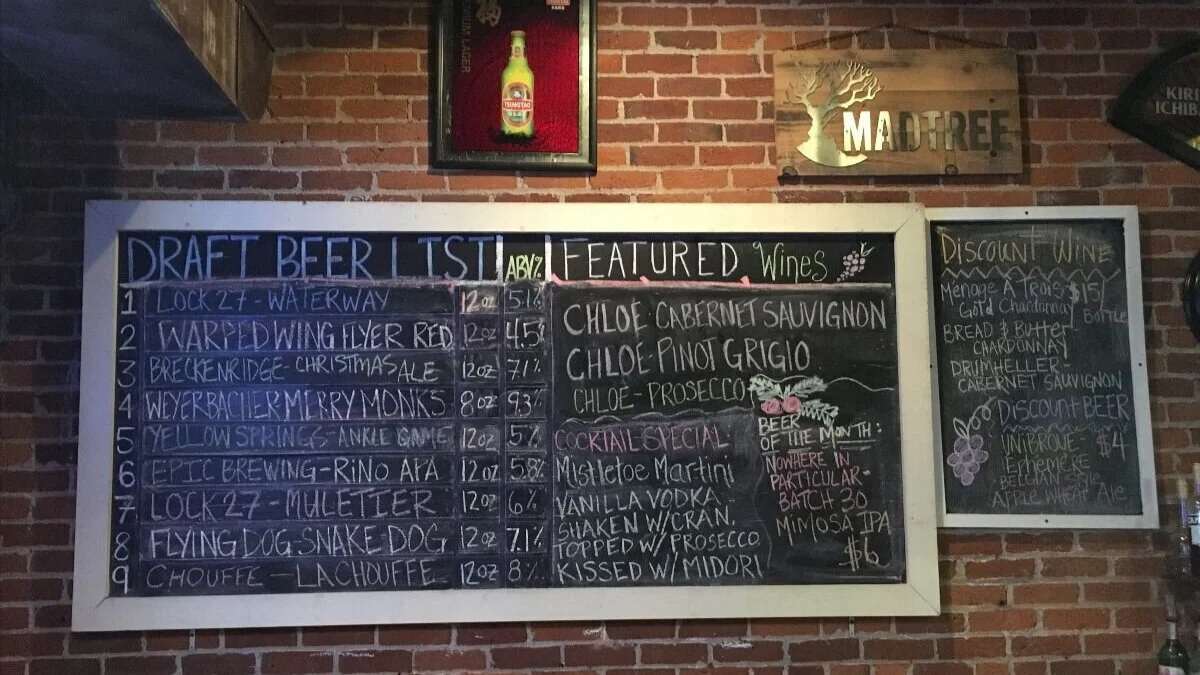 PREMIUM LAGER
TSINGTAO
MADTREE
KIRIN
ICHIBAN
DRAFT BEER LIST ABV%
1 LOCK 27 - WATERWAY 12oz 5.1%
2 WARPED WING FLYER RED 12oz 4.5%
3 BRECKENRIDGE - CHRISTMAS ALE 12oz 7.1%
4 WEYERBACHER MERRY MONKS 8oz 9.3%
5 YELLOW SPRINGS - ANKLE GAME 12oz 5%
6 EPIC BREWING - RiNO APA 12oz 5.8%
7 LOCK 27 - MULETIER 12oz 6%
8 FLYING DOG - SNAKE DOG 12oz 7.1%
9 CHOUFFE - LA CHOUFFE 12oz 8%
FEATURED Wines
CHLOE CABERNET SAUVIGNON
CHLOE - PINOT GRIGIO
CHLOE - PROSECCO
COCKTAIL SPECIAL
Mistletoe Martini
VANILLA VODKA
SHAKEN W/CRAN.
TOPPED W/ PROSECCO
KISSED W/ MIDORI
BEER
OF THE MONTH:
NOWHERE IN
PARTICULAR -
BATCH 30
MIMOSA IPA
$6
DISCOUNT WINE
Menage A Trois - $15/
Gold Chardonnay BOTTLE
BREAD & Butter
CHARDONNAY
DRUMHELLER -
CABERNET SAUVIGNON
DISCOUNT BEER
UNIBROUE - $4
EPHEMERE
BELGIAN STYLE
APPLE WHEAT Ale